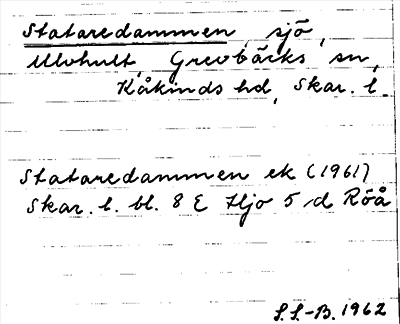 Stataredammen, sjö,
Ulvhult, Grevbäcks sn,
Kåkinds hd, Skar. l.
Stataredammen ek (1961)
Skar. l. bl. 8 E Hjo 5 d Röå
S.S.-B. 1962